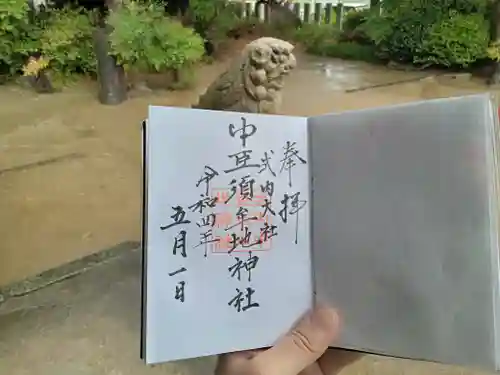 奉拝
式内大社
中臣須牟地神社
令和四年
五月一日